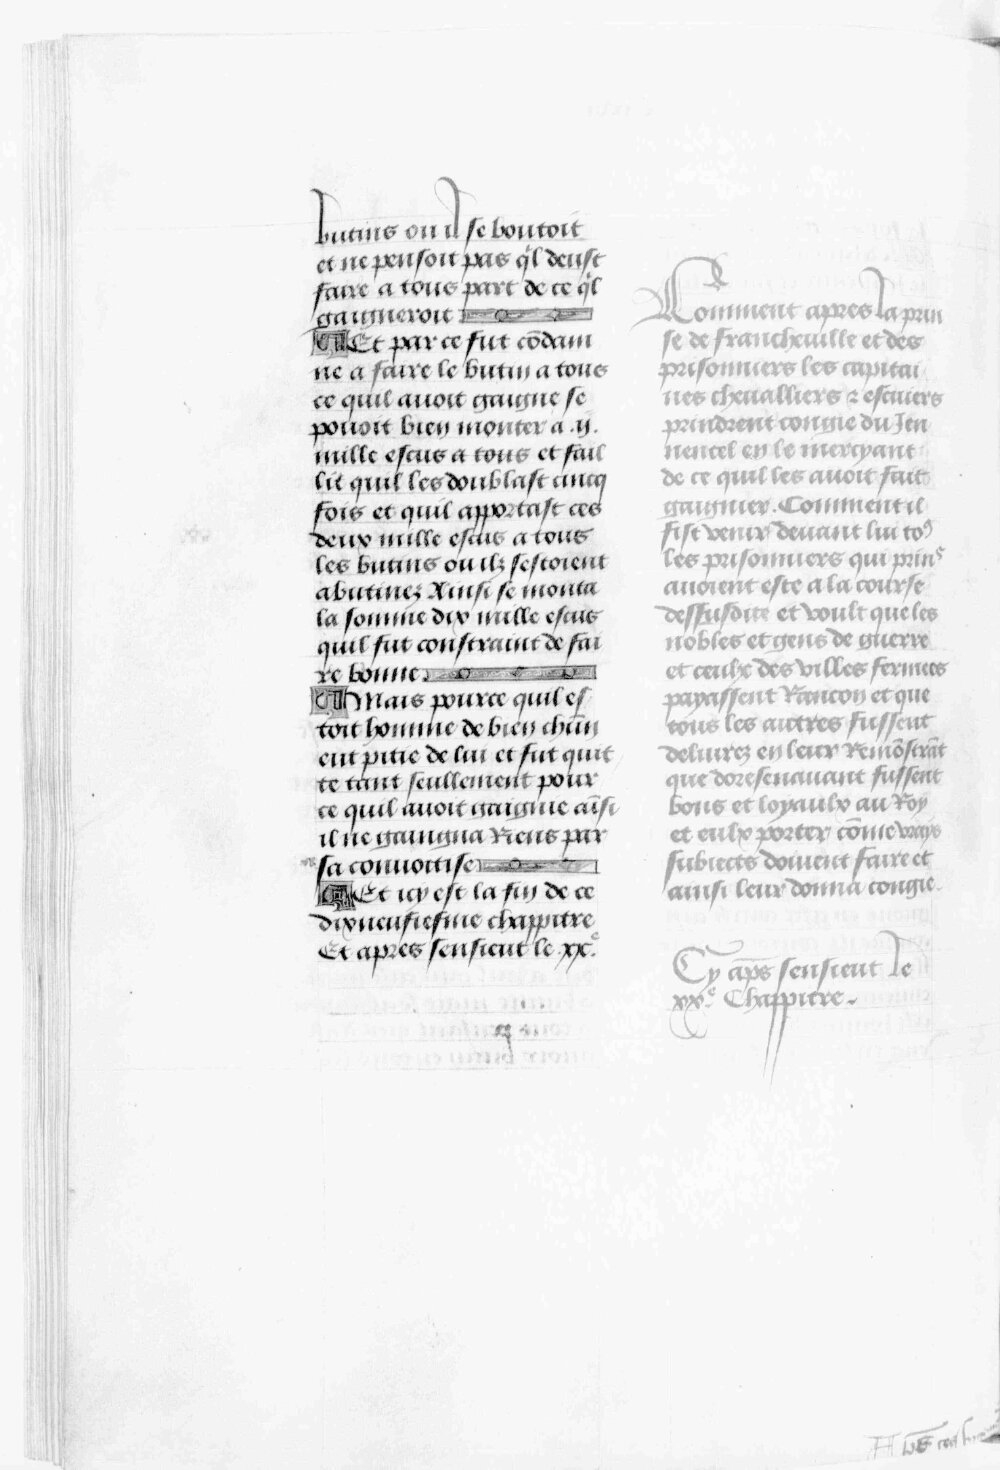 butins ou il se boutoit
et ne pensoit pas q̃l deust
faire a tous part de ce q̃l
gaigneroit
Et par ce fut cõdam
ne a faire le butin a tous
ce quil auoit gaigne se
pouoit bien monter a .ij.
mille escus a tous et fail
lit quil les doublast cincq
fois et quil apportast ces
deux mille escus a tous
les butins ou ilz sestoient
abutinez Ainsi se monta
la somme dix mille escus
quil fut constraint de fai
re bonne.
Mais pource quil es
toit homme de bien chũn
eut pitie de lui et fut quit
te tant seullement pour
ce quil auoit gaignie aĩsi
il ne gaingna Riens par
sa conuoitise
Et icy est la fin de ce
dixneufiesme chappitre
Et apres sensieut le .xx.e
Comment apres la prin
se de francheuille et des
prisonniers les capitai
nes cheualliers z escuiers
prindrent congie du Jen
nencel en le mercyant
de ce quil les auoit fait
gaignier. Comment il
fist venir deuant lui to9
les prisonniers qui prins
auoient este a la course
dessusdite et voult que les
nobles et gens de guerre
et ceulx des villes fermees
payassent Rancon et que
tous les autres fussent
deliurez en leur Remõstrãt
que doresenauant fussent
bons et loyaulx au Roy
et eulx porter cõme vrays
subiects doiuent faire et
ainsi leur donna congie.
Cy aps̃ sensieut le
xx.e Chappitre.